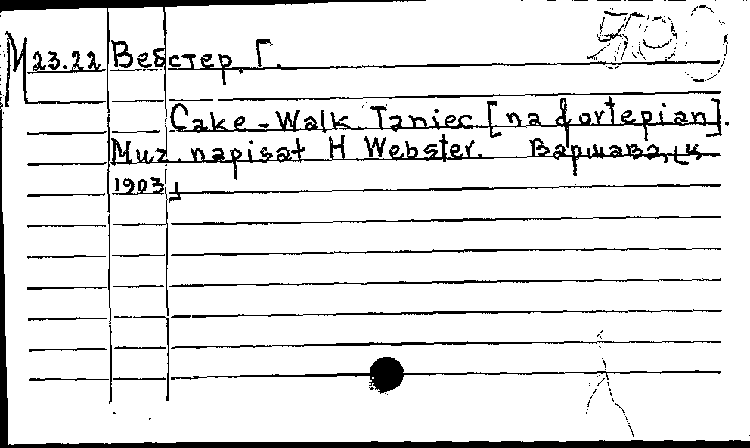 М 23.22 Вебстер, Г. 500
Cake-Walk. Taniec [na fortepian].
Muz. napisał H Webster. Варшава, ц
1903 ┘